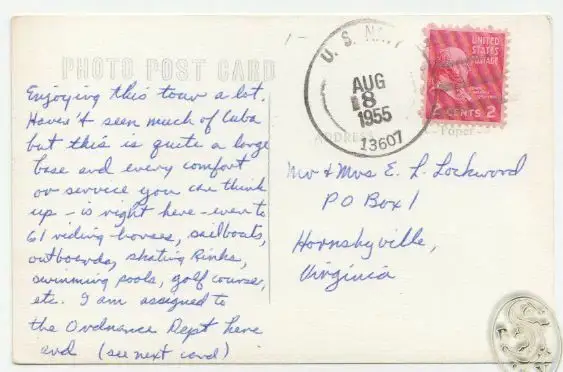 PHOTO POST CARD
Enjoying this tour a lot.
Haven't seen much of Cuba
but this is quite a large
base and every comfort
or service you can think
up - is right here - even to
61 riding horses, sailboats,
outboards, skating rinks,
swimming pools, golf course,
etc. I am assigned to
the Ordnance Dept here
and (see next card)
U. S. NAVY
AUG
8
1955
13607
UNITED
STATES
POSTAGE
2 CENTS 2
ADDRESS
Paper
Mr & Mrs E. L. Lockwood
P O Box 1
Hornsbyville,
Virginia